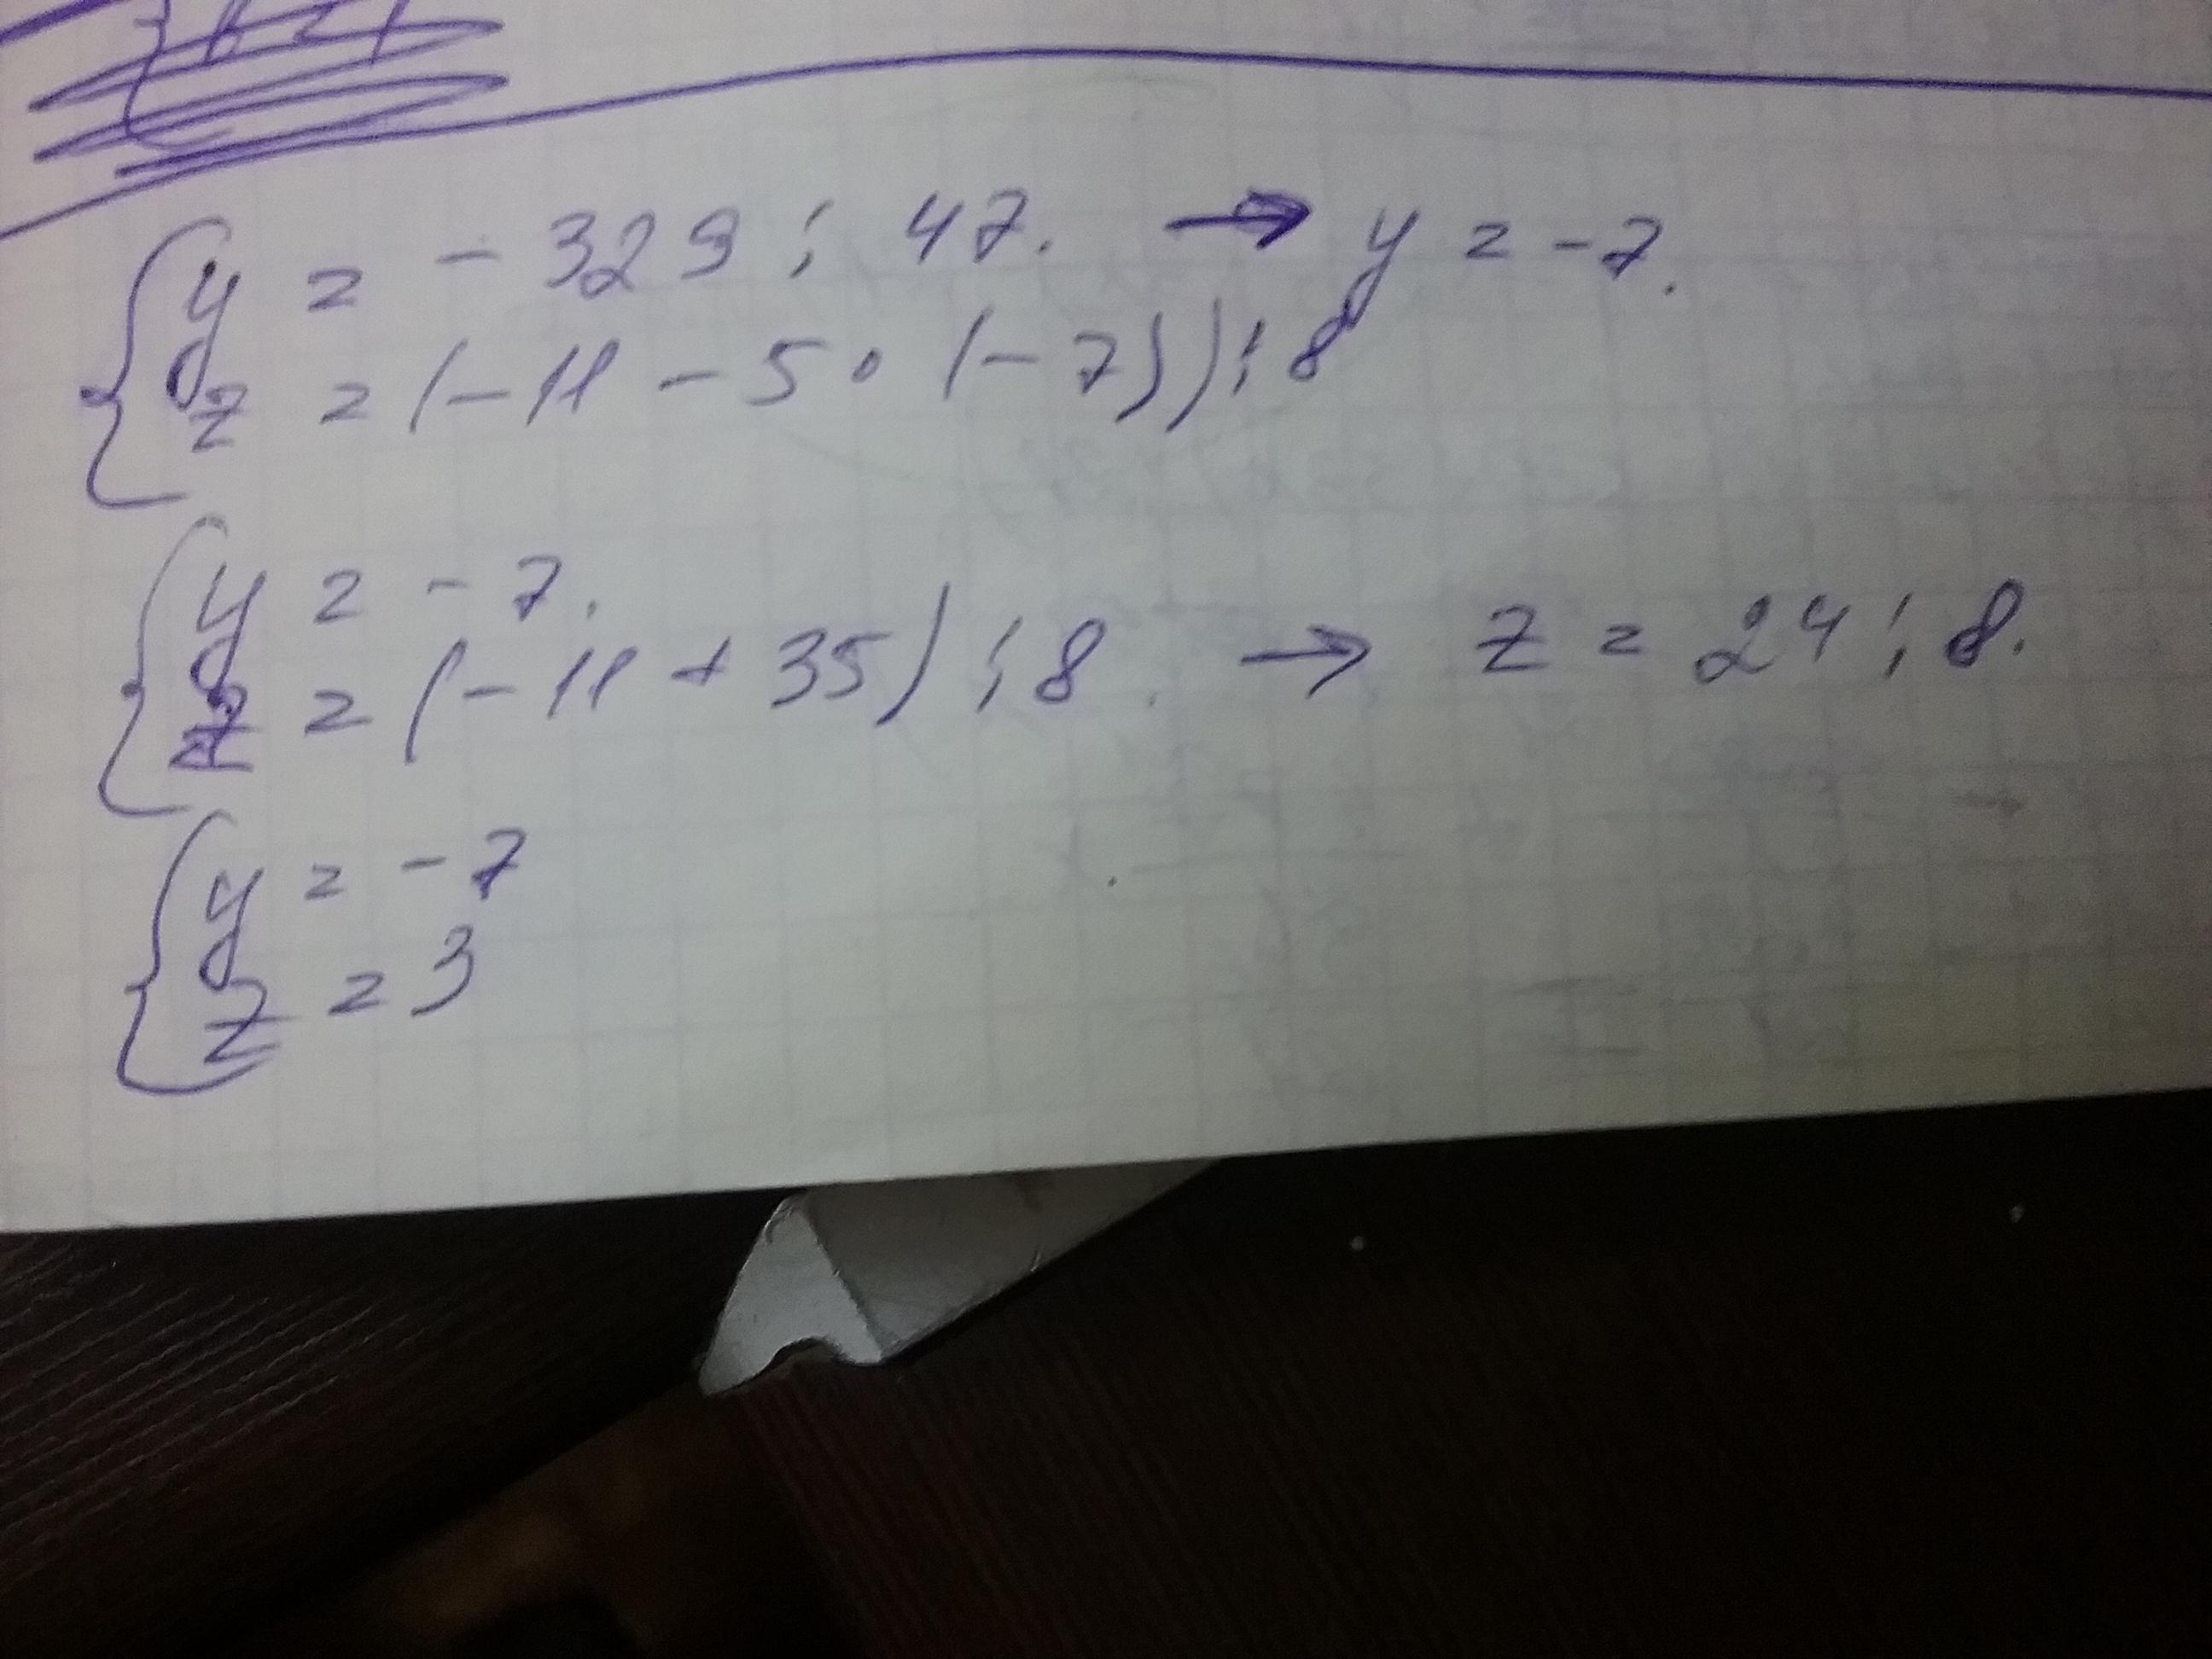 y = - 329 : 47. → y = -7.
z = (-11 - 5 • (-7)) : 8
y = - 7.
z = (-11 + 35) : 8. → z = 24 : 8.
y = -7
z = 3